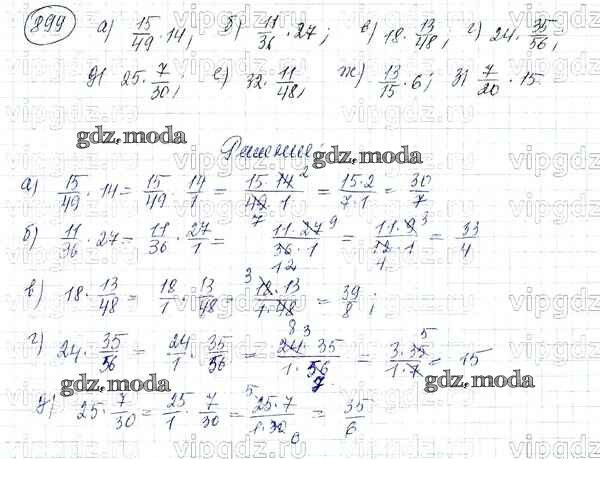 899 а) 15/49 · 14; б) 11/36 · 27; в) 18 · 13/48; г) 24 · 35/56;
д) 25 · 7/30; е) 32 · 11/48; ж) 13/15 · 6; з) 7/20 · 15.
gdz.moda
Решение: gdz.moda
а) 15/49 · 14 = 15/49 · 14/1 = 15·14/49·1 = 15·2/7·1 = 30/7
б) 11/36 · 27 = 11/36 · 27/1 = 11·27/36·1 = 11·9/12·1 = 33/4
в) 18 · 13/48 = 18/1 · 13/48 = 18·13/1·48 = 39/8;
gdz.moda
г) 24 · 35/56 = 24/1 · 35/56 = 24·35/1·56 = 3·35/1·7 = 15
gdz.moda gdz.moda
д) 25 · 7/30 = 25/1 · 7/30 = 25·7/1·30 = 35/6